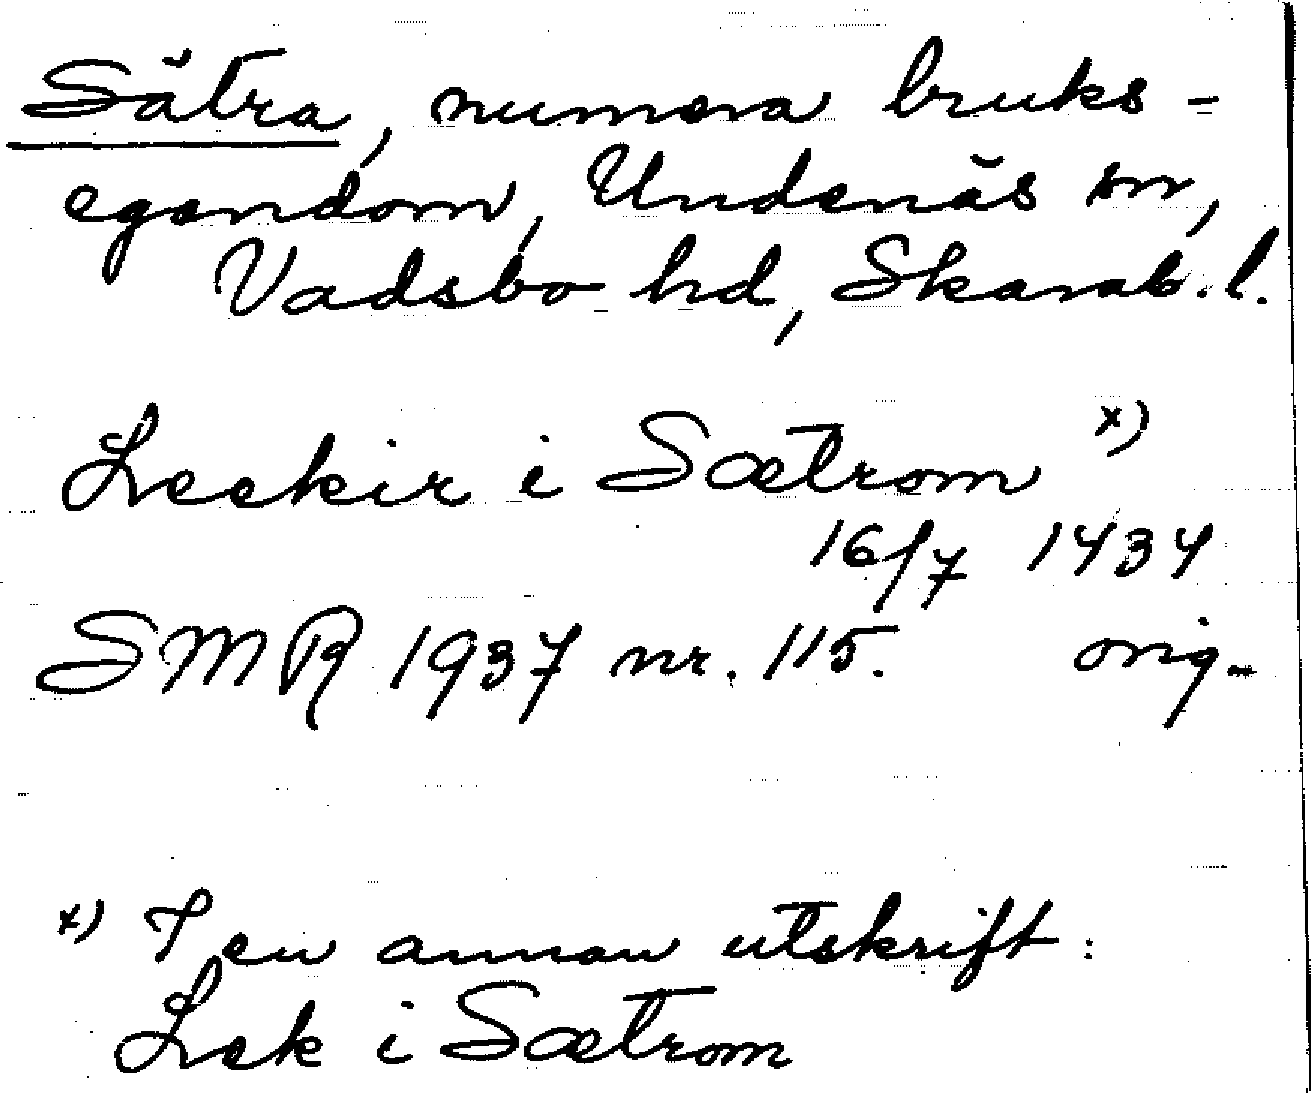 Sätra, numera bruks-
egendom, Undenäs sn,
Vadsbo hd, Skarab. l.
Leekir i Sætrom x)
16/7 1434
SMR 1937 nr. 115. orig.
x) I en annan utskrift:
Lek i Sætrom